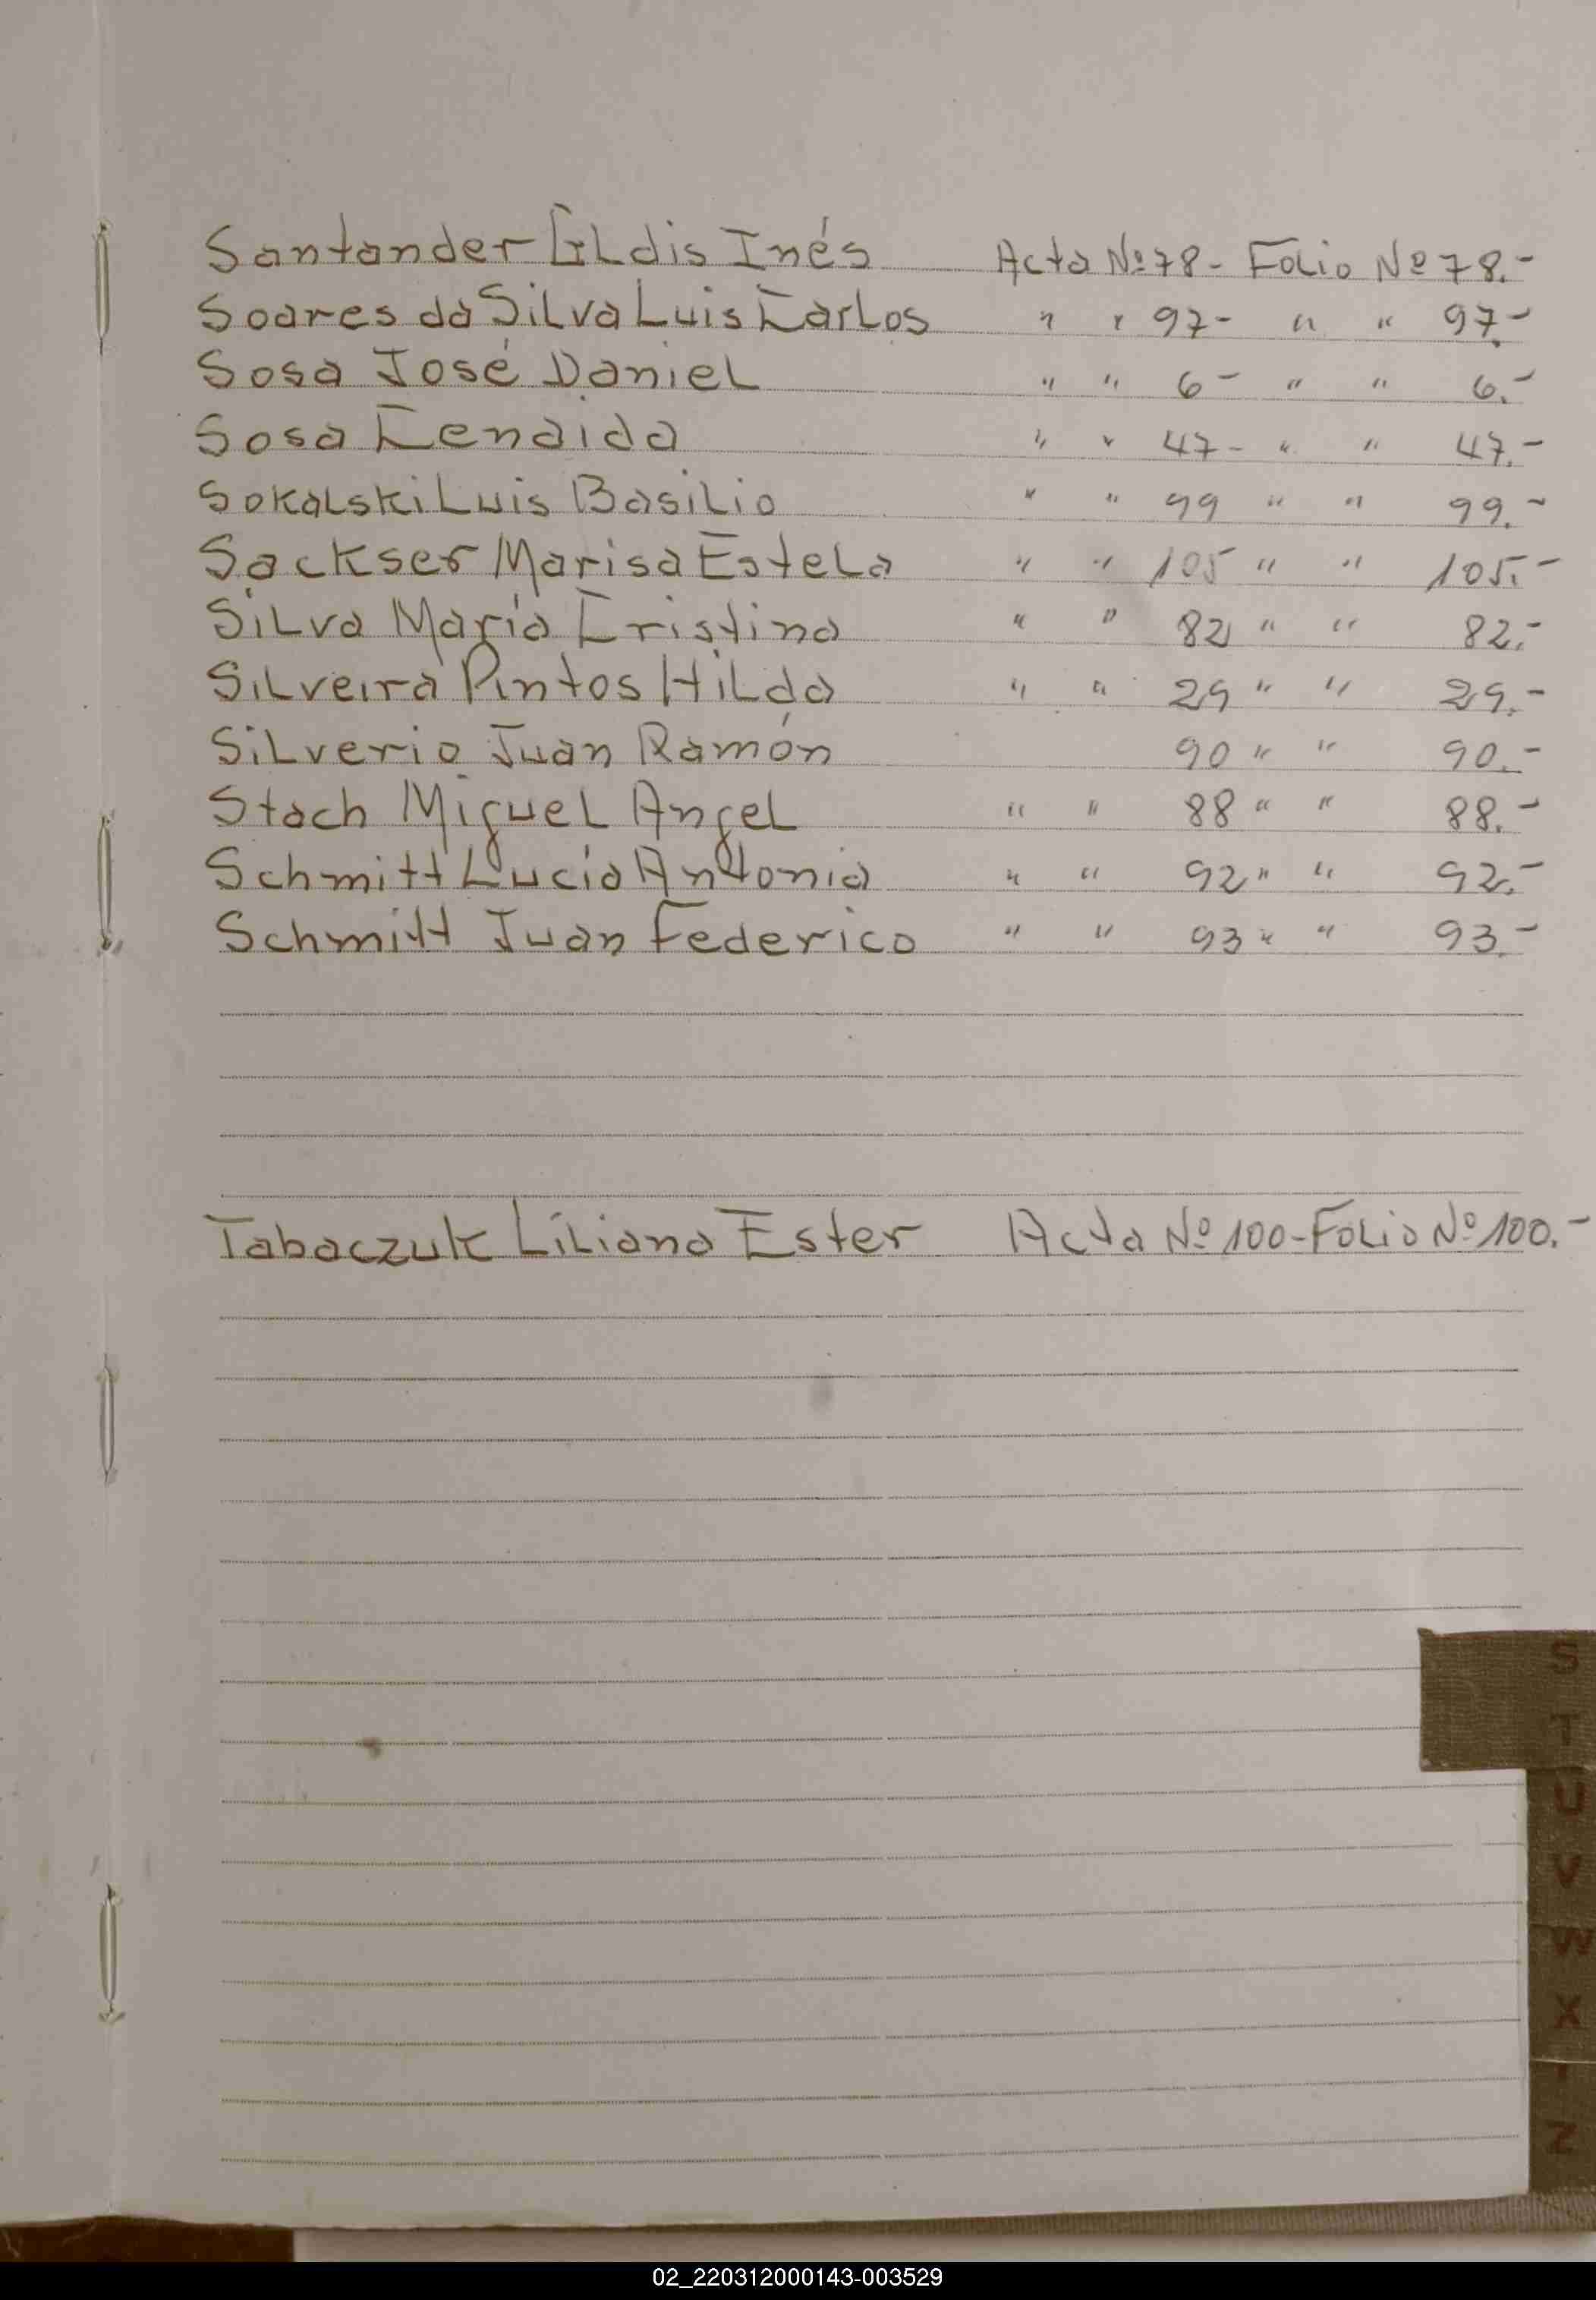 Santander Gldis Inés Acta Nº 78- Folio Nº 78.-
Soares da Silva Luis Carlos " " 97- " " 97.-
Sosa José Daniel " " 6- " " 6.-
Sosa Cenaida " " 47- " " 47.-
Sokalski Luis Basilio " " 99 " " 99.-
Sackser Marisa Estela " " 105 " " 105.-
Silva María Cristina " " 82 " " 82.-
Silveira Pintos Hilda " " 29 " " 29.-
Silverio Juan Ramón 90 " " 90.-
Stach Miguel Angel " " 88 " " 88.-
Schmitt Lucía Antonia " " 92 " " 92.-
Schmitt Juan Federico " " 93 " " 93.-
Tabaczuk Liliana Ester Acta Nº 100-Folio Nº 100.-
S
T
U
V
W
X
Z
02_220312000143-003529